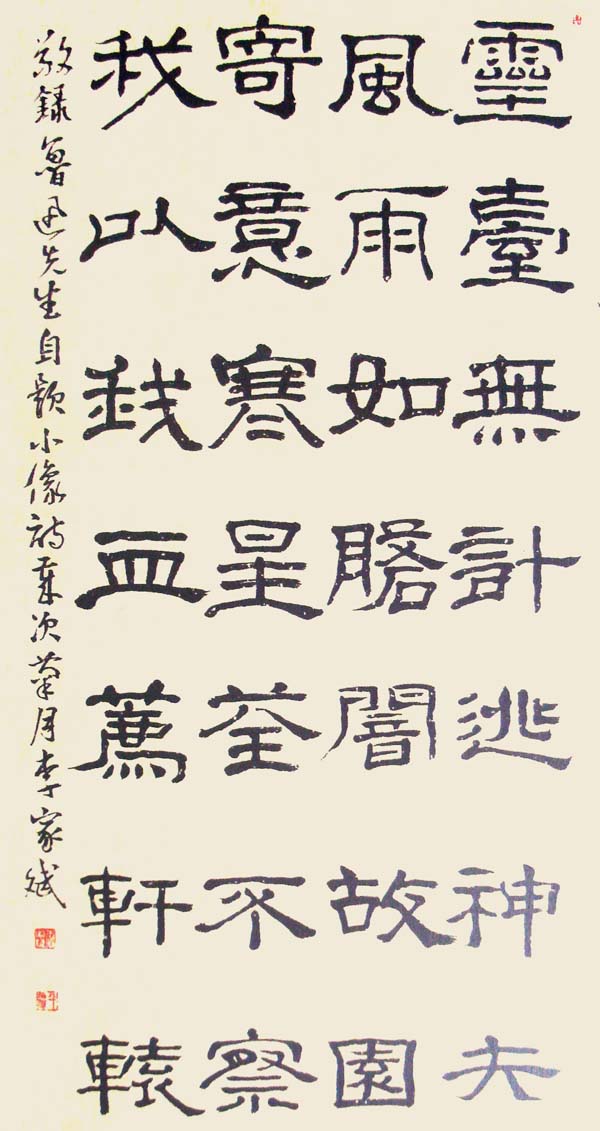 靈臺無計逃神矢
風雨如磐闇故園
寄意寒星荃不察
我以我血薦軒轅
敬錄魯迅先生自題小像詩歲次菊月李家斌